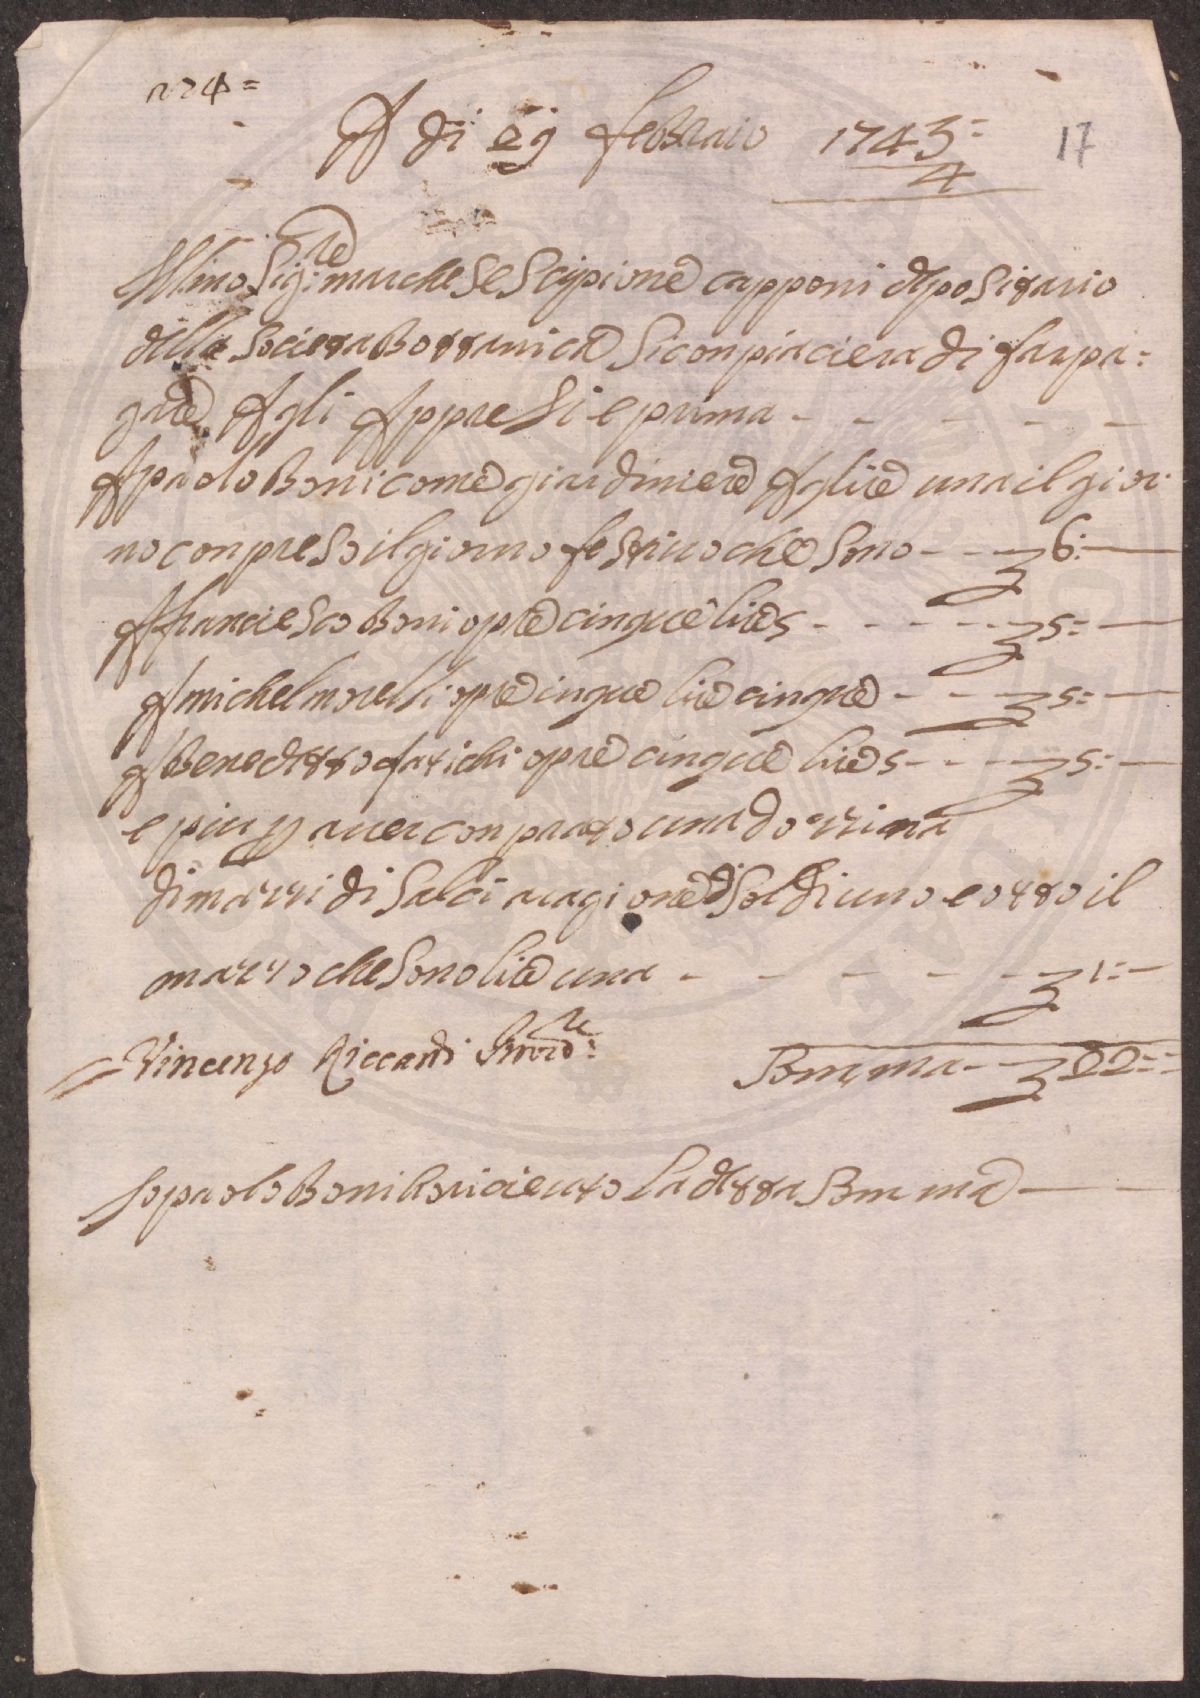 224=
A di 29 febraio 1743=/4
17
Illmo Sig:re marchese Scipione capponi depositario
della Societa Bottanica Si conpiaciera di far pa=
gare Agli Appresi e prima - - - - -
A paolo Boni come giardiniere A lire una il gior
no conpreso il giorno festivo che sono - - - £ 6:
A franciesco Boni opre cinque lire 5 - - - - - £ 5:
A michel morelli opre cinque lire cinque - - - £ 5:
A Benedetto fatichi opre cinque lire 5 - - - - £ 5:
e piu p aver conprato una dozzina
di mazzi di Salci a ragione di Soldi uno e otto il
mazzo che sono lire una - - - - - £ 1:
Vincenzo Riccardi Provre:
Somma - - £ 22=
Io paolo Boni o riceuto la detta Somma